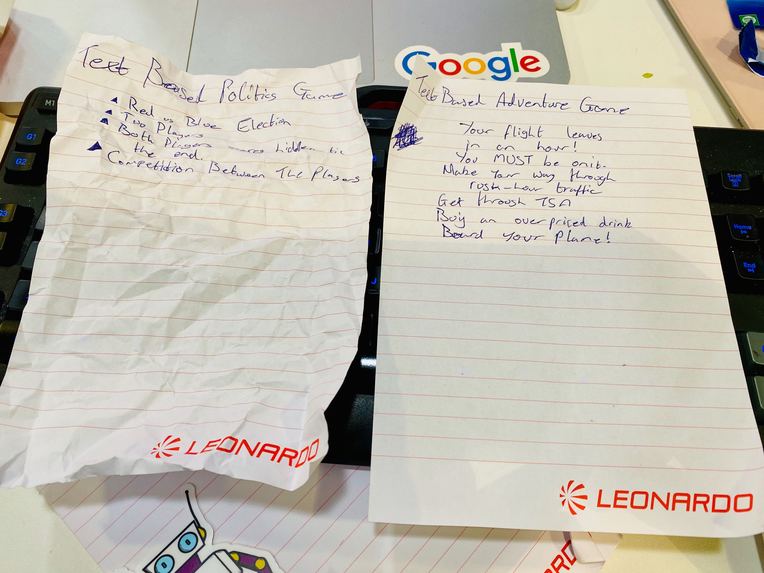 Google
Text Based Politics Game
Red vs Blue Election
Two Players
Both Players scores hidden til
the end.
Competition Between The Players
LEONARDO
Text Based Adventure Game
Your flight leaves
in an hour!
You MUST be on it.
Make Your way through
rush-hour traffic
Get through TSA
Buy an overpriced drink
Board Your Plane!
LEONARDO
M1
G1
G2
G3
Home
End